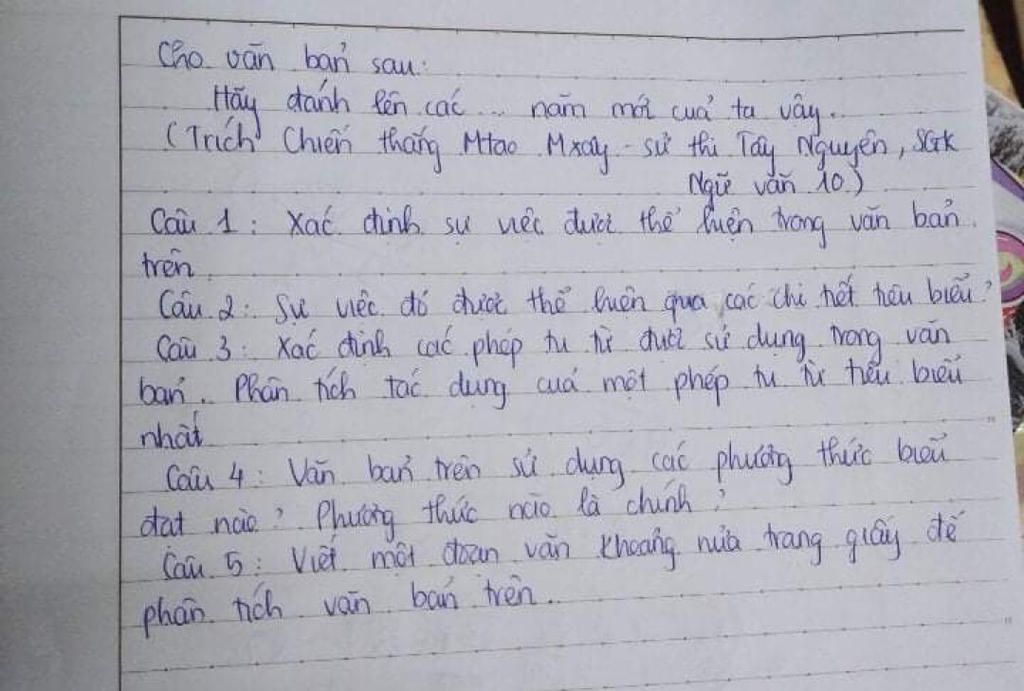 Cho văn bản sau:
Hãy đánh lên các ... năm mới của ta vậy.
(Trích Chiến thắng Mtao Mxây - sử thi Tây Nguyên, SGK
Ngữ văn 10)
Câu 1: Xác định sự việc được thể hiện trong văn bản
trên.
Câu 2: Sự việc đó được thể hiện qua các chi tiết tiêu biểu?
Câu 3: Xác định các phép tu từ được sử dụng trong văn
bản. Phân tích tác dụng của một phép tu từ tiêu biểu
nhất
Câu 4: Văn bản trên sử dụng các phương thức biểu
đạt nào? Phương thức nào là chính?
Câu 5: Viết một đoạn văn khoảng nửa trang giấy để
phân tích văn bản trên.